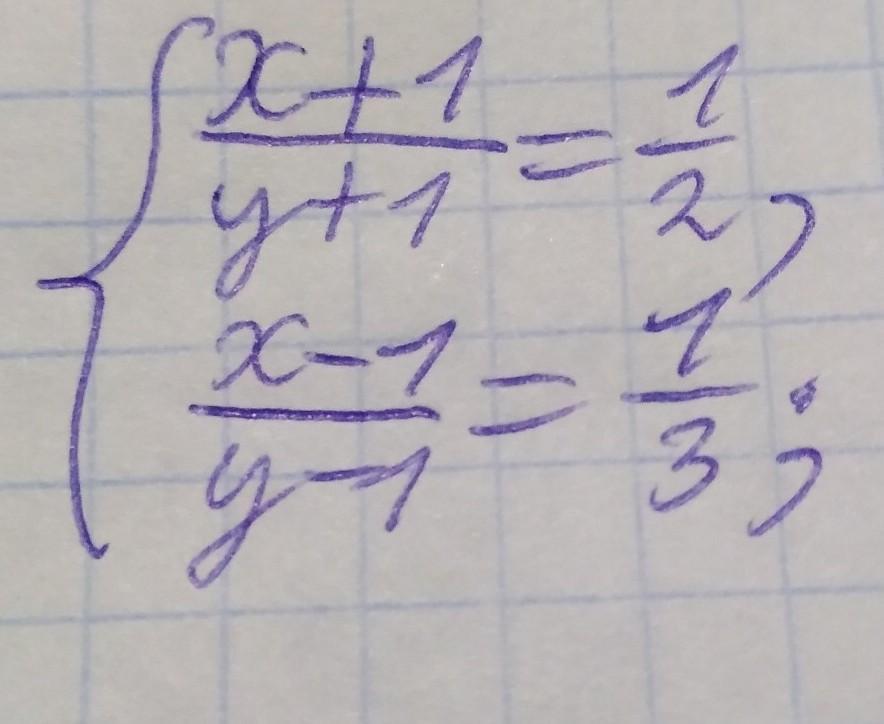 { (x+1)/(y+1) = 1/2,
(x-1)/(y-1) = 1/3;